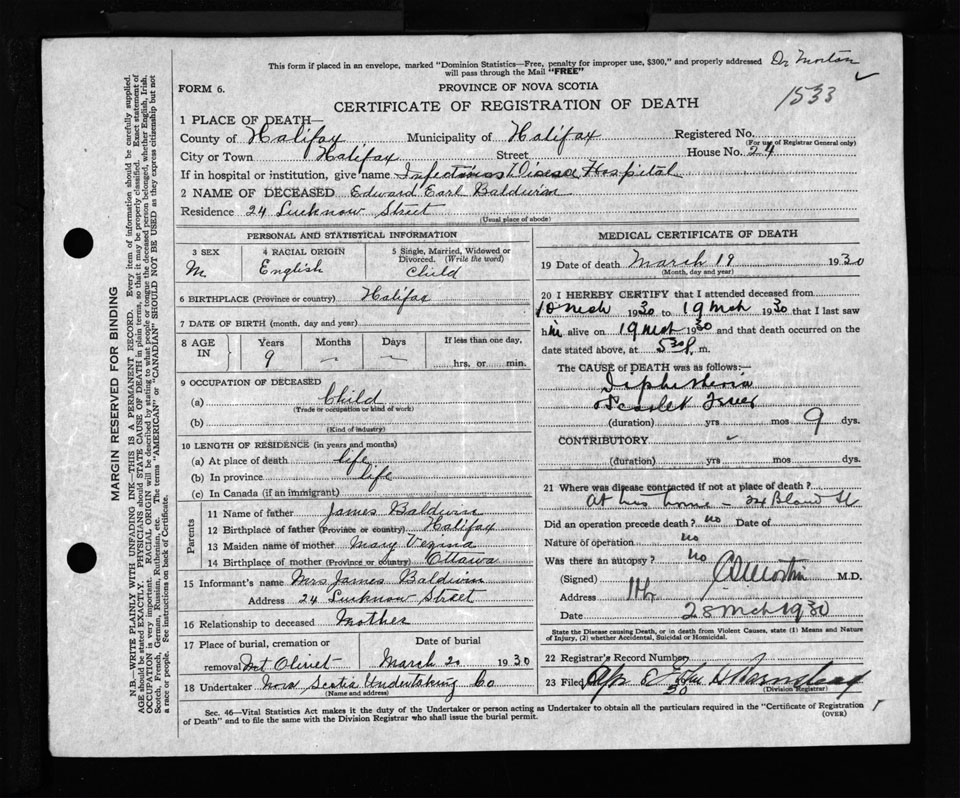 This form if placed in an envelope, marked "Dominion Statistics—Free, penalty for improper use, $300," and properly addressed Dr Morton
will pass through the Mail "FREE"
FORM 6. PROVINCE OF NOVA SCOTIA 1533
CERTIFICATE OF REGISTRATION OF DEATH
1 PLACE OF DEATH—
County of Halifax Municipality of Halifax Registered No.
(For use of Registrar General only)
City or Town Halifax Street House No. 24
If in hospital or institution, give name Infectious Disease Hospital
2 NAME OF DECEASED Edward Earl Baldwin
Residence 24 Lucknow Street
(Usual place of abode)
PERSONAL AND STATISTICAL INFORMATION
3 SEX
M.
4 RACIAL ORIGIN
English
5 Single, Married, Widowed or
Divorced. (Write the word)
Child
6 BIRTHPLACE (Province or country) Halifax
7 DATE OF BIRTH (month, day and year)
8 AGE
IN
Years Months Days If less than one day,
9 — — hrs. or min.
9 OCCUPATION OF DECEASED
(a) Child
(Trade or occupation or kind of work)
(b)
(Kind of industry)
10 LENGTH OF RESIDENCE (in years and months)
(a) At place of death life
(b) In province life
(c) In Canada (if an immigrant)
Parents
11 Name of father James Baldwin
12 Birthplace of father (Province or country) Halifax
13 Maiden name of mother Mary Vezina
14 Birthplace of mother (Province or country) Ottawa
15 Informant's name Mrs James Baldwin
Address 24 Lucknow Street
16 Relationship to deceased Mother
17 Place of burial, cremation or Date of burial
removal Mt Olivet March 20 1930
18 Undertaker Nova Scotia Undertaking Co
(Name and address)
MEDICAL CERTIFICATE OF DEATH
19 Date of death March 19 1930
(Month, day and year)
20 I HEREBY CERTIFY that I attended deceased from
10 Mch 1930 to 19 Mch 1930 that I last saw
him alive on 19 Mch 1930 and that death occurred on
date stated above, at 5 30 p. m.
The CAUSE OF DEATH was as follows:—
Diphtheria
Scarlet Fever
(duration) yrs mos 9 dys.
CONTRIBUTORY
(duration) yrs mos dys.
21 Where was disease contracted if not at place of death?
At his home — 24 Bland St
Did an operation precede death? no Date of
Nature of operation no
Was there an autopsy? no
(Signed) M.D.
Address Hfx
Date 28 Mch 1930
State the Disease causing Death, or in death from Violent Causes, state (1) Means and Nature
of Injury, (2) whether Accidental, Suicidal or Homicidal.
22 Registrar's Record Number
23 Filed
(Division Registrar)
Sec. 46—Vital Statistics Act makes it the duty of the Undertaker or person acting as Undertaker to obtain all the particulars required in the "Certificate of Registration
of Death" and to file the same with the Division Registrar who shall issue the burial permit. (OVER)
MARGIN RESERVED FOR BINDING
N.B.—WRITE PLAINLY WITH UNFADING INK—THIS IS A PERMANENT RECORD. Every item of information should be carefully supplied.
AGE should be stated EXACTLY. PHYSICIANS should STATE CAUSE OF DEATH in plain terms, so that it may be properly classified. Exact statement of
OCCUPATION is very important. RACIAL ORIGIN will be described by stating to what people or tongue the deceased person belonged, whether English, Irish,
Scotch, French, German, Russian, Ruthenian, etc. The terms "AMERICAN" or "CANADIAN" SHOULD NOT BE USED as they express citizenship but not
a race or people. See instructions on back of Certificate.